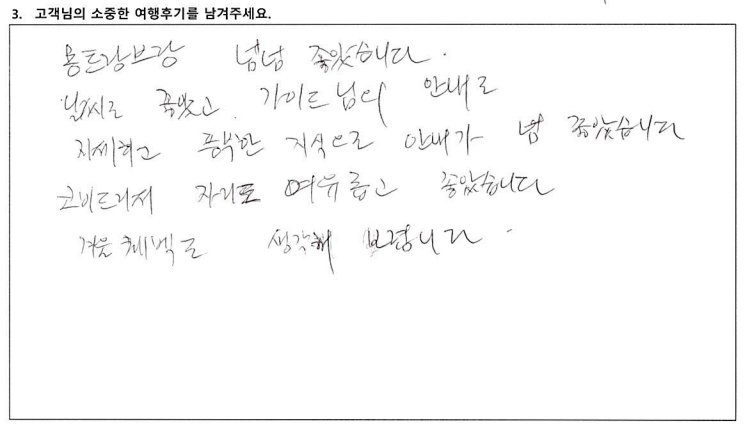 3. 고객님의 소중한 여행후기를 남겨주세요.
몽트랑브랑 넘넘 좋았습니다.
날씨도 좋았고. 가이드님의 안내도
자세하고 풍부한 지식으로 안내가 넘 좋았습니다
자리도 여유롭고 좋았습니다
겨울 퀘벡도 생각해 보렵니다.